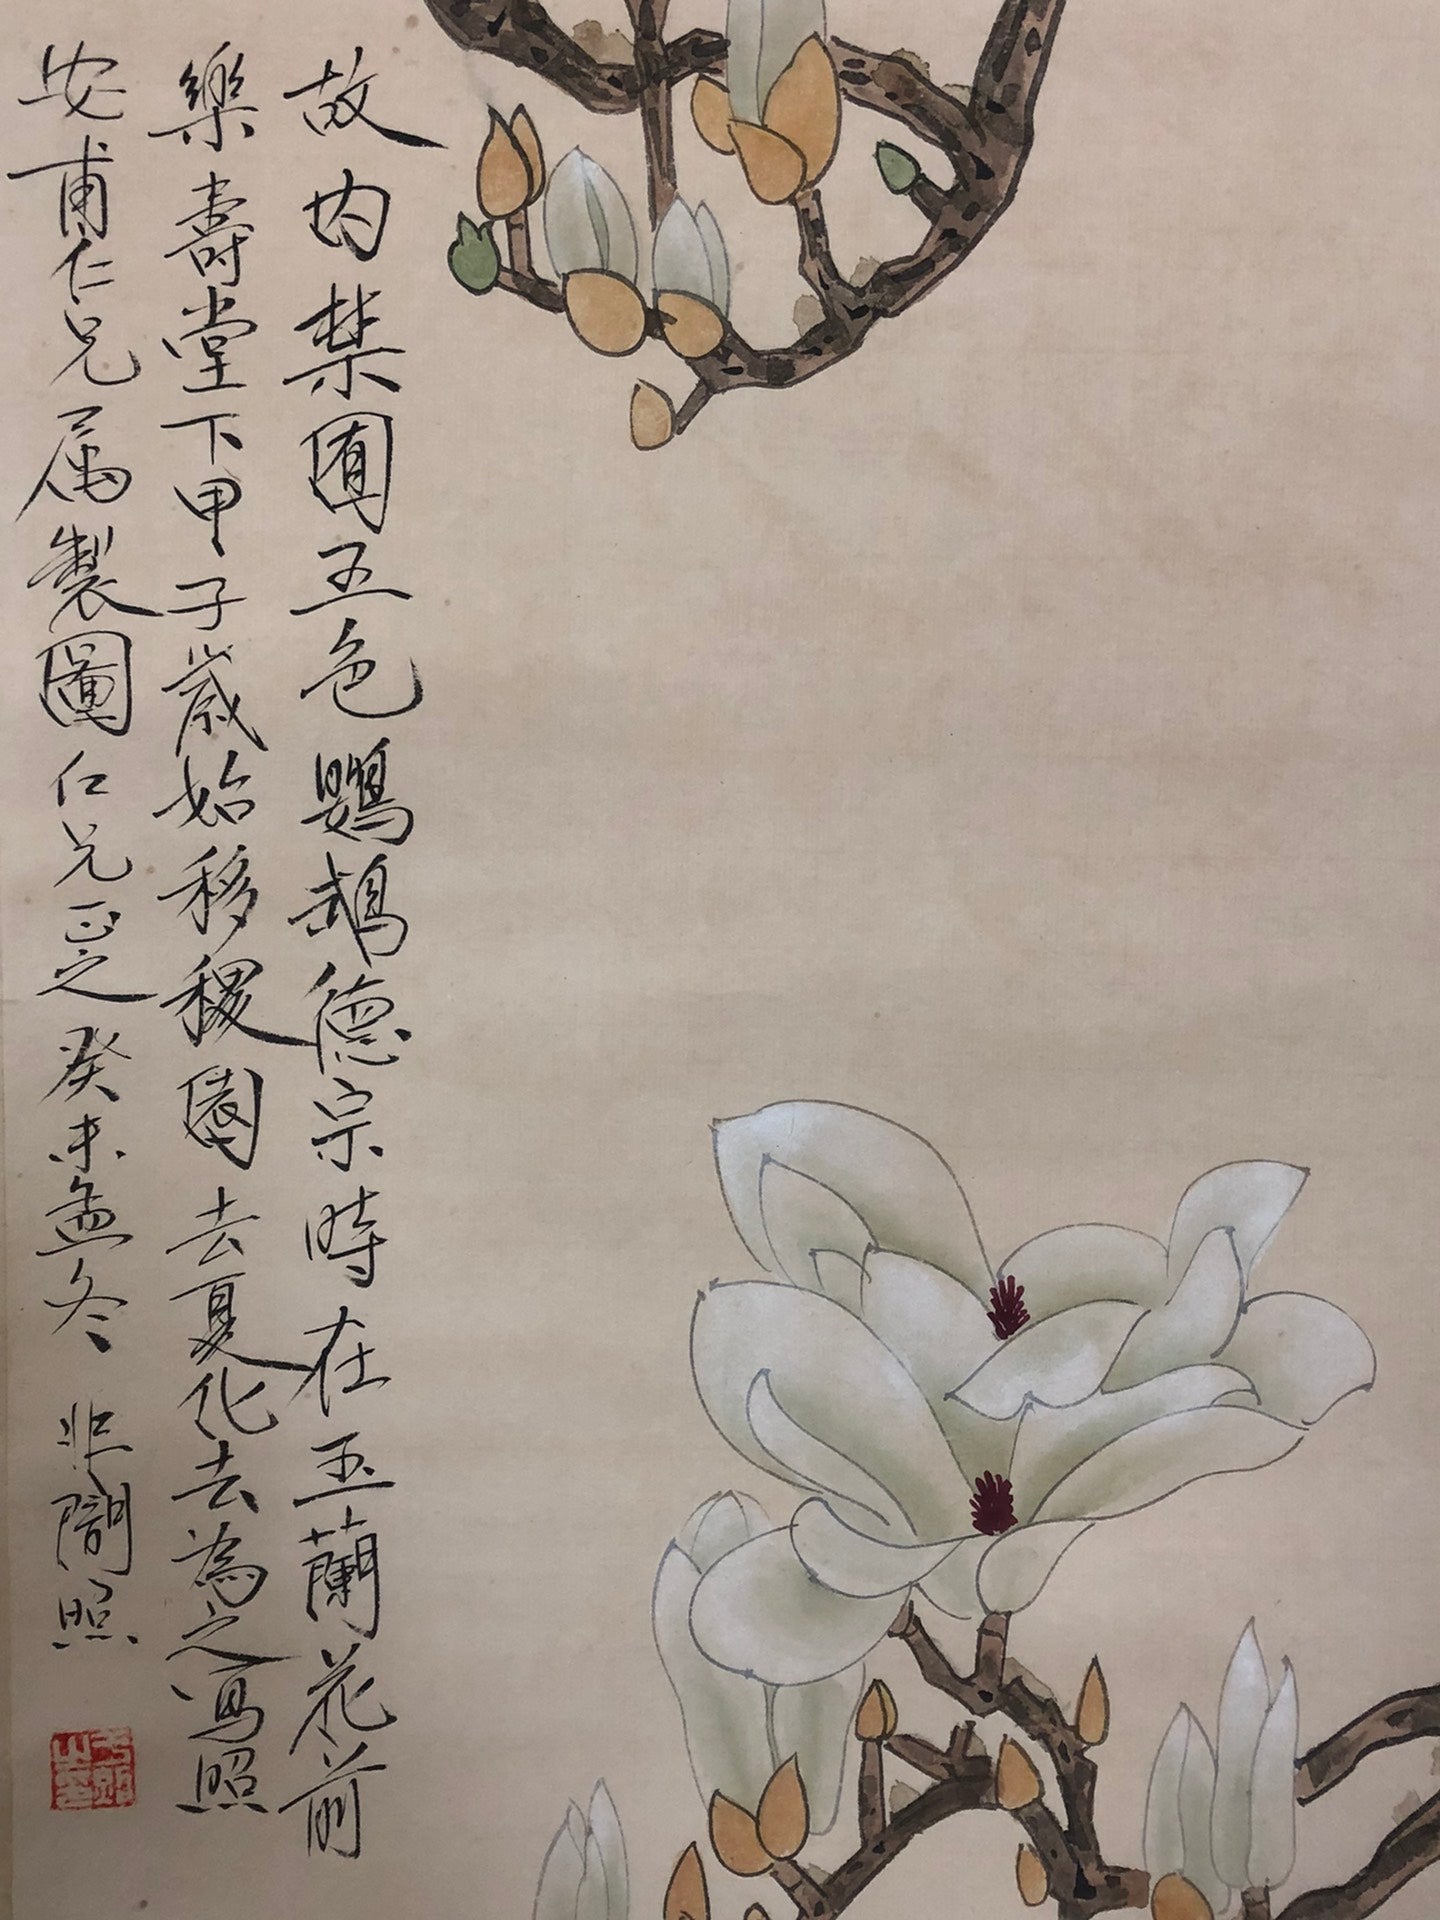 故内禁囿五色鸚鵡德宗時在玉蘭花前
樂壽堂下甲子歲始移稷園去夏化去為之寫照
安甫仁兄属製圖仁兄正之癸未孟冬 非闇照